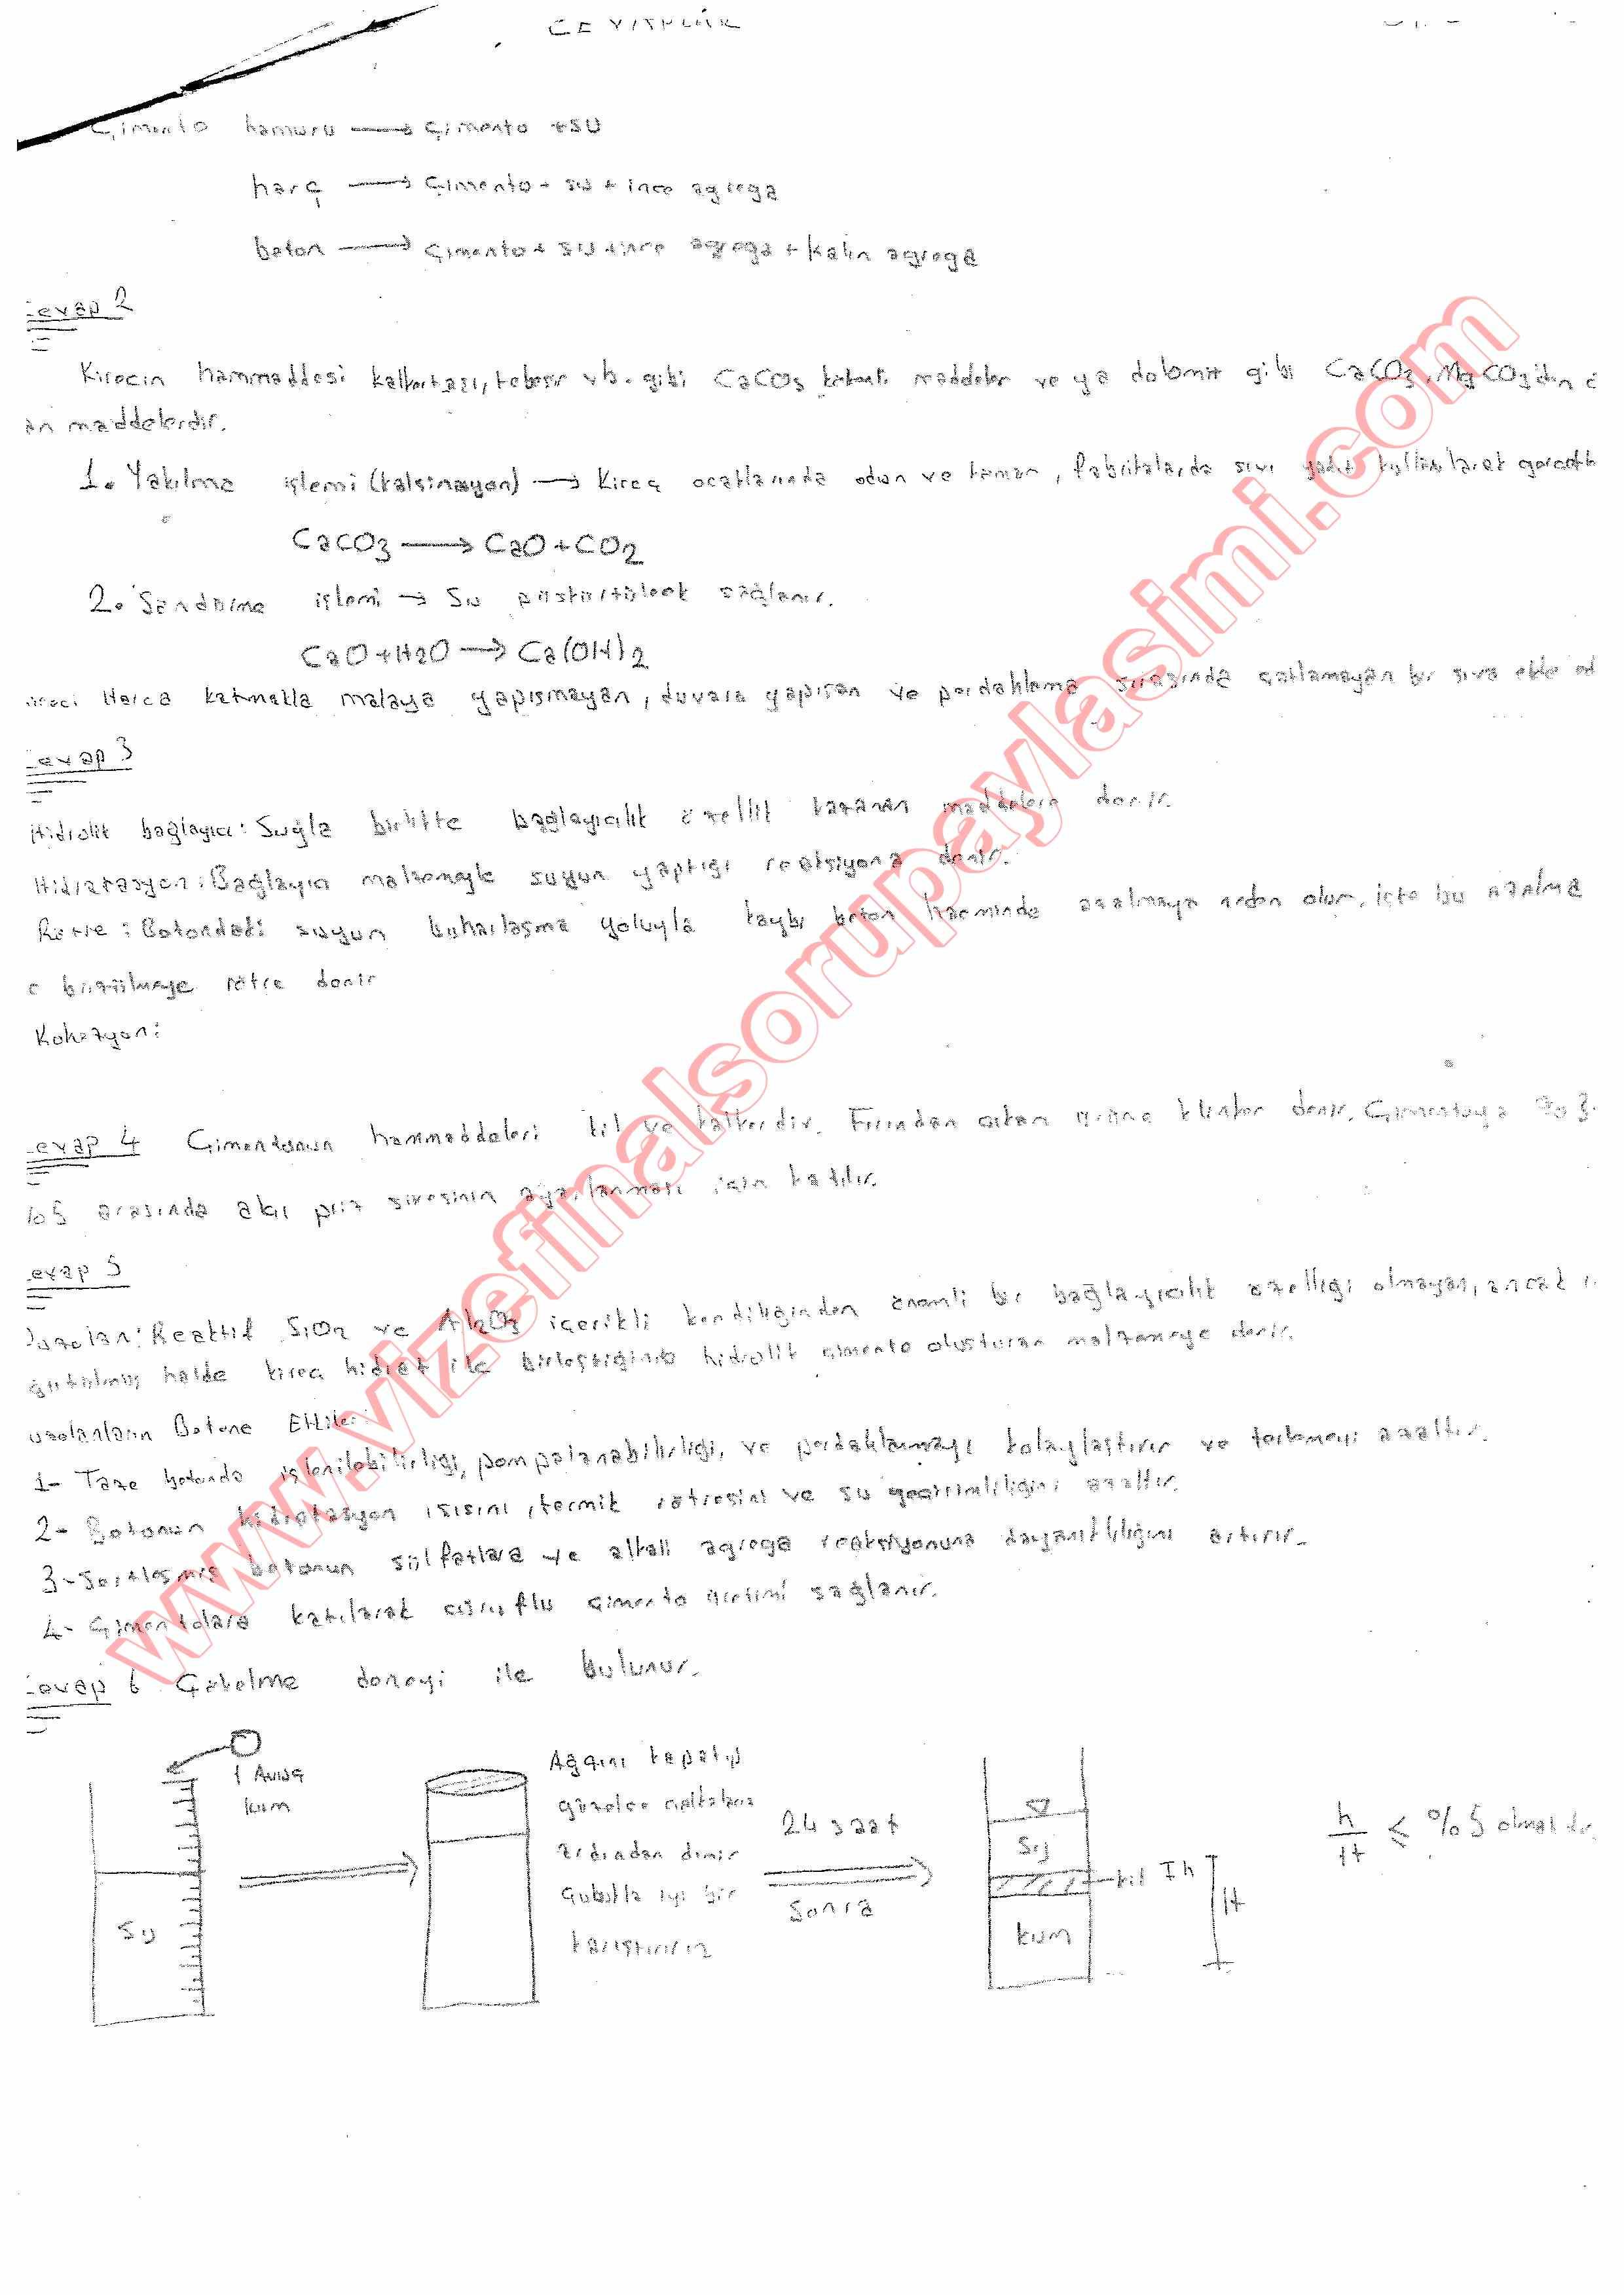 CEVAPLAR
Çimento hamuru → Çimento + su
harç → Çimento + su + ince agrega
beton → Çimento + su + ince agrega + kalın agrega
Cevap 2
Kirecin hammaddesi kalkertaşı, tebeşir vb. gibi CaCO3 kökenli maddeler ve ya dolomit gibi CaCO3, MgCO3'dan
an maddelerdir.
1. Yakılma işlemi (kalsinasyon) → Kireç ocaklarında odun ve kömür, fabrikalarda sıvı yakıt kullanılarak
CaCO3 → CaO + CO2
2. Söndürme işlemi → Su püskürtülerek sağlanır.
CaO + H2O → Ca(OH)2
ireci Harca katmakla malaya yapışmayan, duvara yapışan ve perdahlama sırasında çatlamayan bir sıva elde ed
Cevap 3
Hidrolik bağlayıcı: Suyla birlikte bağlayıcılık özellik kazanan maddelere denir.
Hidratasyon: Bağlayıcı malzemeyle suyun yaptığı reaksiyona denir.
Rötre: Betondaki suyun buharlaşma yoluyla kaybı beton hacminde azalmaya neden olur, işte bu azalma
e büzülmeye rötre denir
Kohezyon:
Cevap 4 Çimentonun hammaddeleri kil ve kalkerdir. Fırından çıkan ürüne klinker denir. Çimentoya %3-
%5 arasında alçı priz süresinin ayarlanması için katılır.
Cevap 5
Puzolan: Reaktif SiO2 ve Al2O3 içerikli kendiliğinden önemli bir bağlayıcılık özelliği olmayan, ancak i
öğütülmüş halde kireç hidrat ile birleştiğinde hidrolik çimento oluşturan malzemeye denir.
uzolanların Betona Etkileri:
1- Taze betonda işlenilebilirliği, pompalanabilirliği, ve perdahlanmayı kolaylaştırır ve terlemeyi azaltır.
2- Betonun hidratasyon ısısını, termik rötresini ve su geçirimliliğini azaltır.
3- Sertleşmiş betonun sülfatlara ve alkali agrega reaksiyonuna dayanıklılığını artırır.
4- Çimentolara katılarak cüruflu çimento üretimi sağlanır.
Cevap 6 Çökelme deneyi ile bulunur.
1 Avuç
kum
Su
Ağzını kapatıp
güzelce çalkalarız
ardından demir
çubukla iyi bir
karıştırırız
24 saat
sonra
Su
kil
kum
h
H
h/H ≤ %5 olmalıdır.
www.vizefinalsorupaylasimi.com